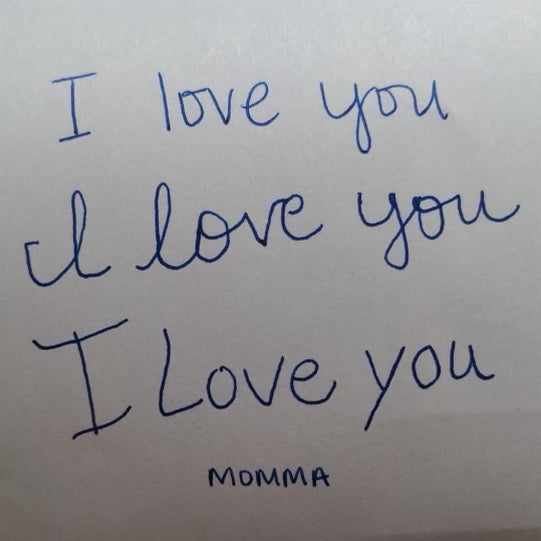 I love you
I love you
I Love you
MOMMA